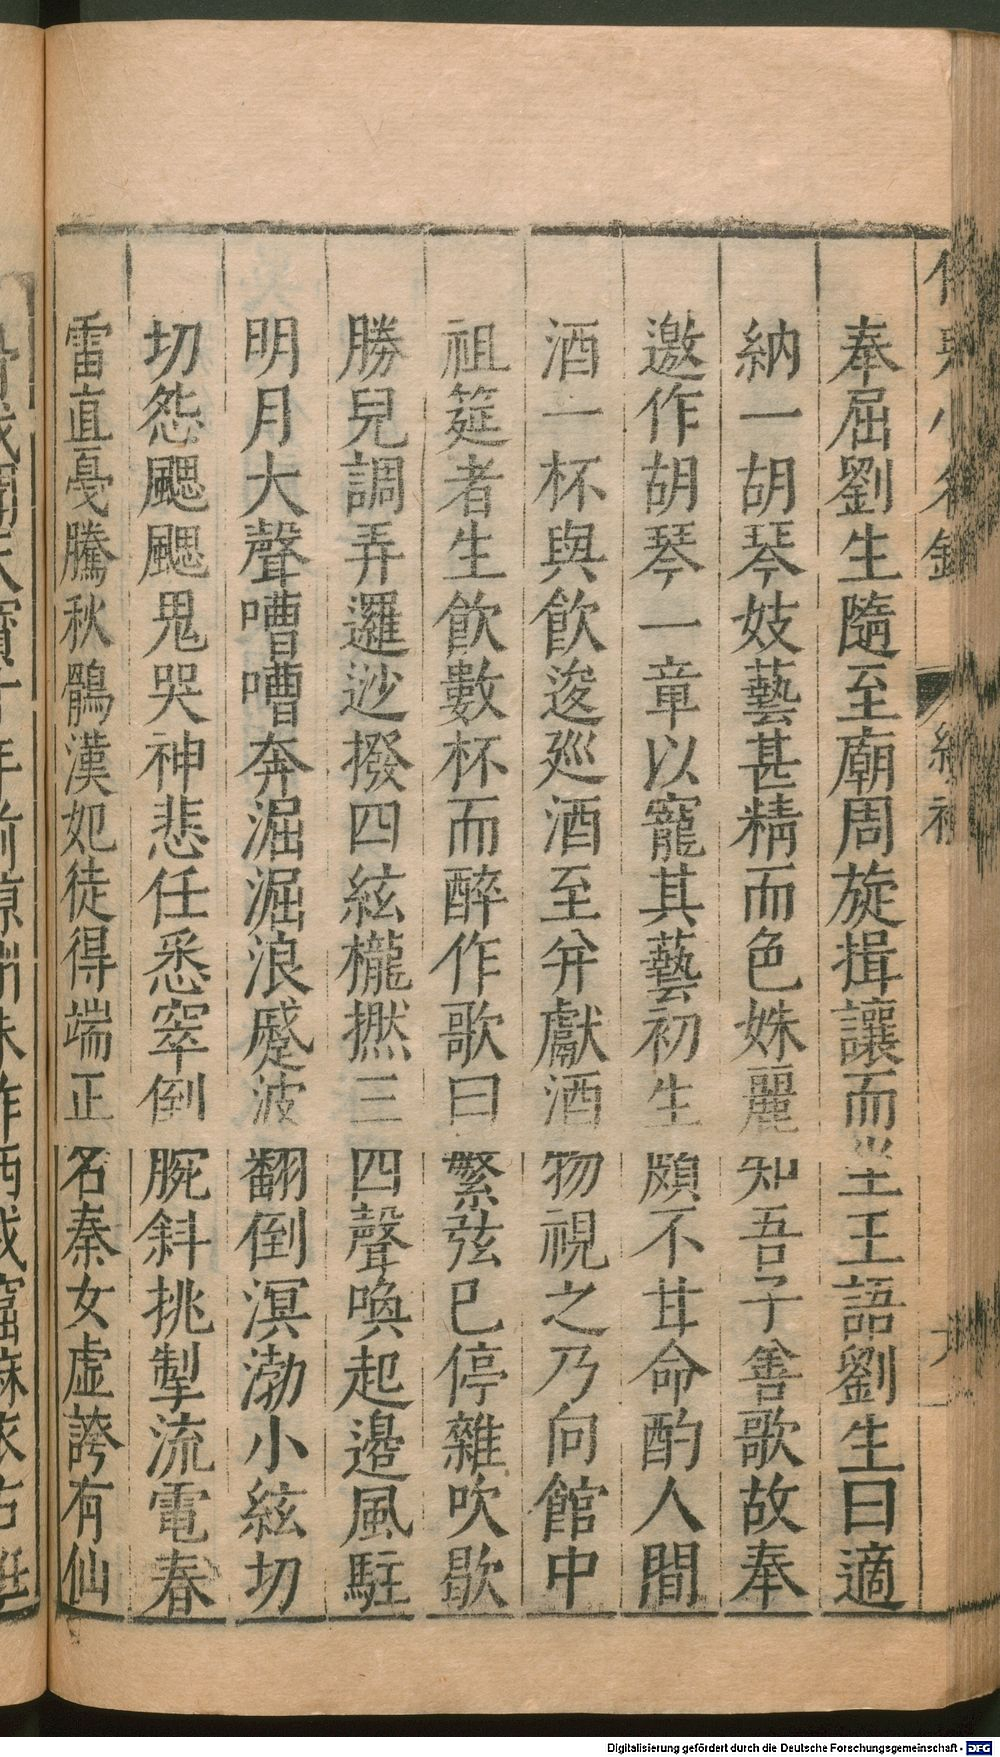 奉屈劉生隨至廟周旋揖讓而坐王語劉生曰適
納一胡琴妓藝甚精而色姝麗知吾子善歌故奉
邀作胡琴一章以寵其藝初生頗不甘命酌人間
酒一杯與飲逡廵酒至并獻酒物視之乃向館中
祖筵者生飲數杯而醉作歌曰繁弦已停雜吹歇
勝兒調弄邏逤撥四絃櫳撚三四聲喚起邉風駐
明月大聲嘈嘈奔淈淈浪蹙波翻倒溟渤小絃切
切怨颸颸鬼哭神悲任悉窣倒腕斜挑掣流電春
雷直戞騰秋鶻漢妃徒得端正名秦女虛誇有仙
Digitalisierung gefördert durch die Deutsche Forschungsgemeinschaft - DFG